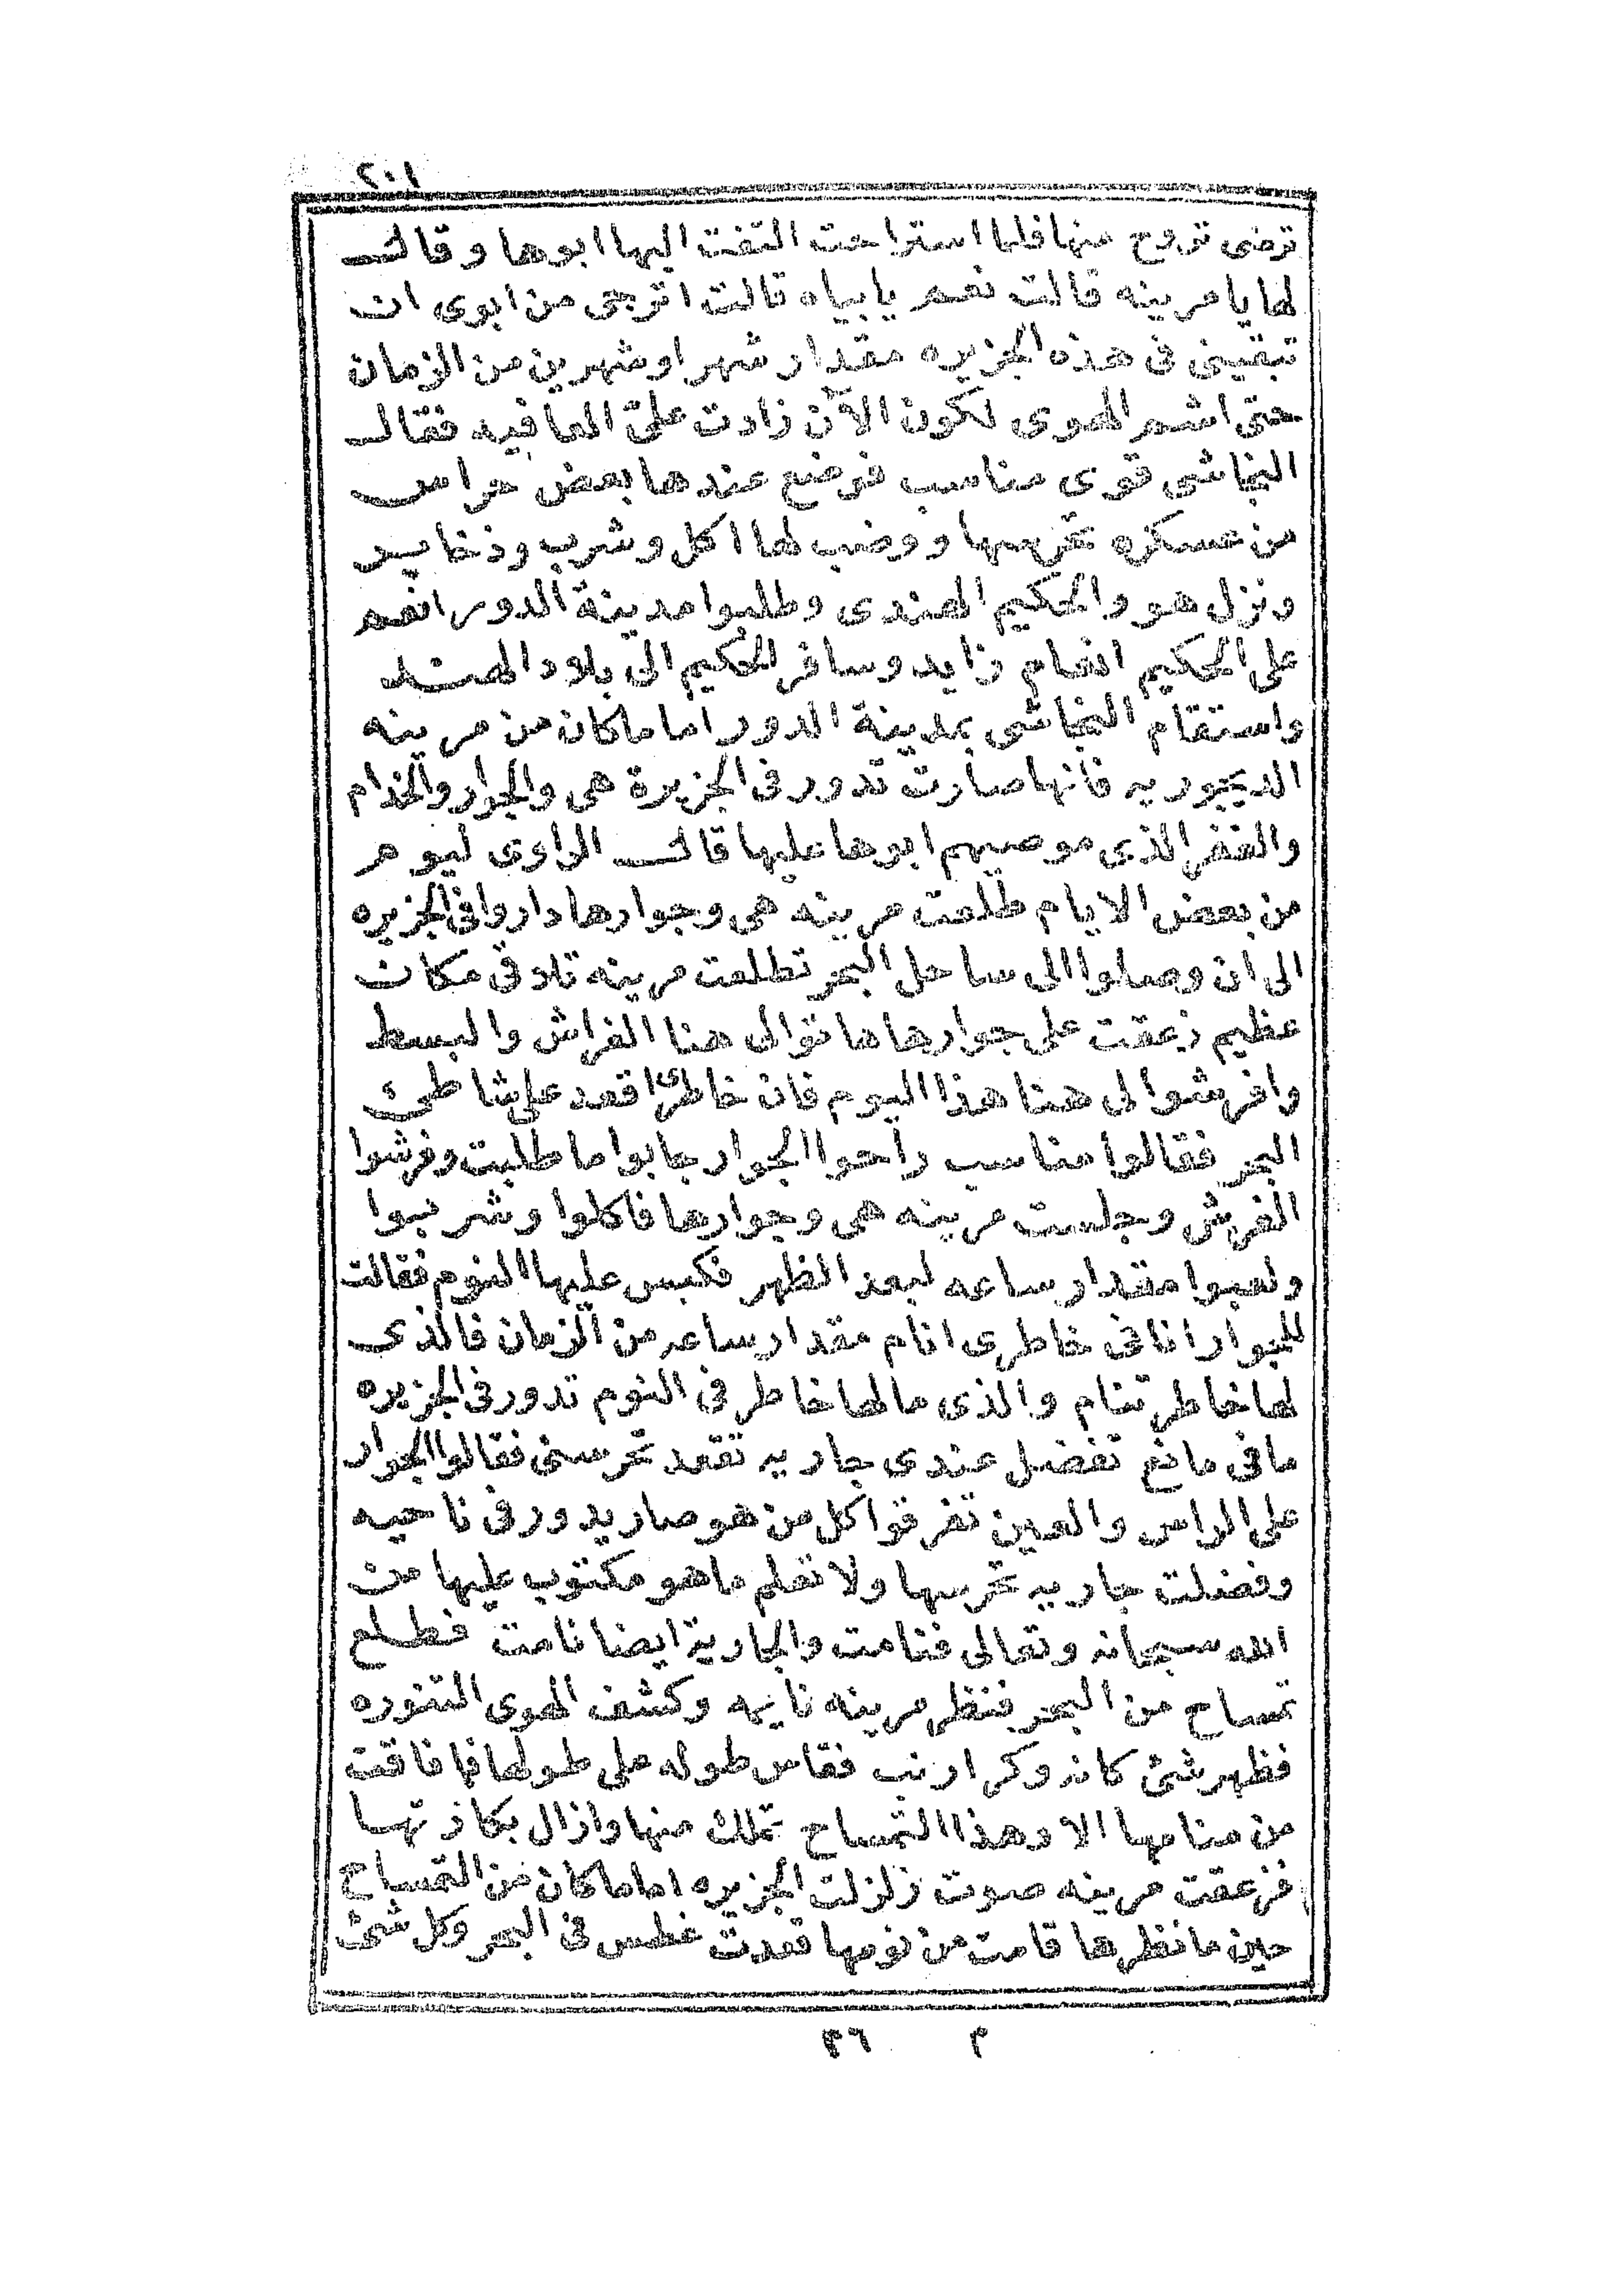 ٢٠١
ترضى تروح منها فلما استراحت التفت اليها ابوها وقال
لها يا مرينه قالت نعم يا بياه قالت اترجى من ابوى ان
تبقينى فى هذه الجزيره مقدار شهر او شهرين من الزمان
حتى اشم الهوى لكون الآن زادت علىّ العافيه فقال
النجاشى قوى مناسب فوضع عندها بعض حراس
من عسكره تحرسها ووضب لها اكل وشرب وذخاير
ونزل هو والحكيم الهندى وطلبوا مدينة الدور انعم
على الحكيم انعام زايد وسافر الحكيم الى بلاد الهند
واستقام النجاشى بمدينة الدور اما ما كان من مرينه
الديجوريه فانها صارت تدور فى الجزيرة هى والجوار والخدام
والغفر الذى موصيهم ابوها عليها قال الراوى ليوم
من بعض الايام طلعت مرينه هى وجوارها داروا فى الجزيره
الى ان وصلوا الى ساحل البحر تطلعت مرينه تلاقى مكان
عظيم زعقت على جوارها هاتوا الى هنا الفراش والبسط
وافرشوا لى هنا هذا اليوم فان خاطرى اقعد على شاطئ
البحر فقالوا مناسب راحوا الجوار جابوا ما طلبت وفرشوا
الفرش وجلست مرينه هى وجوارها فاكلوا وشربوا
ولعبوا مقدار ساعه لبعد الظهر فكبس عليها النوم فقالت
للجوار انا فى خاطرى انام مقدار ساعه من الزمان فالذى
لها خاطر تنام والذى ما لها خاطر فى النوم تدور فى الجزيره
ما فى مانع تفضل عندى جاريه تقعد تحرسنى فقالوا الجوار
على الراس والعين تفرقوا كل من هو صار يدور فى ناحيه
وفضلت جاريه تحرسها ولا تعلم ما هو مكتوب عليها من
الله سبحانه وتعالى فنامت والجارية ايضا نامت فطلع
تمساح من البحر فنظر مرينه نايمه وكشف الهوى التنوره
فظهر شئ كانه وكر ارنب فقاس طوله على طولها فما فاقت
من منامها الا وهذا التمساح تملك منها وازال بكازتها
فزعقت مرينه صوت زلزلت الجزيره اما ما كان من التمساح
حين ما نظرها قامت من نومها قعدت غطس فى البحر وكل شئ
م ٢٦